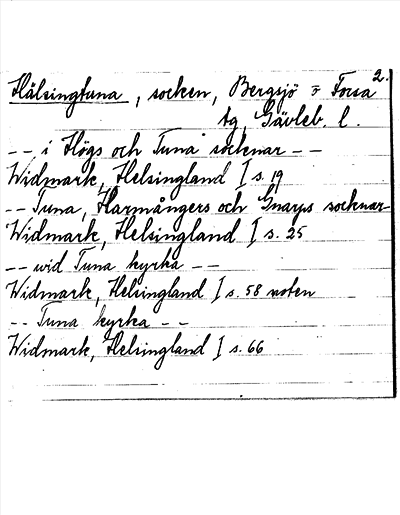 2.
Hälsingtuna, socken, Bergsjö o Forsa
tg, Gävleb. l.
-- i Högs och Tuna socknar --
Widmark, Helsingland I s. 19
-- Tuna, Harmångers och Gnarps socknar
Widmark, Helsingland I s. 25
-- wid Tuna kyrka --
Widmark, Helsingland I s. 58 noten
-- Tuna kyrka --
Widmark, Helsingland I s. 66